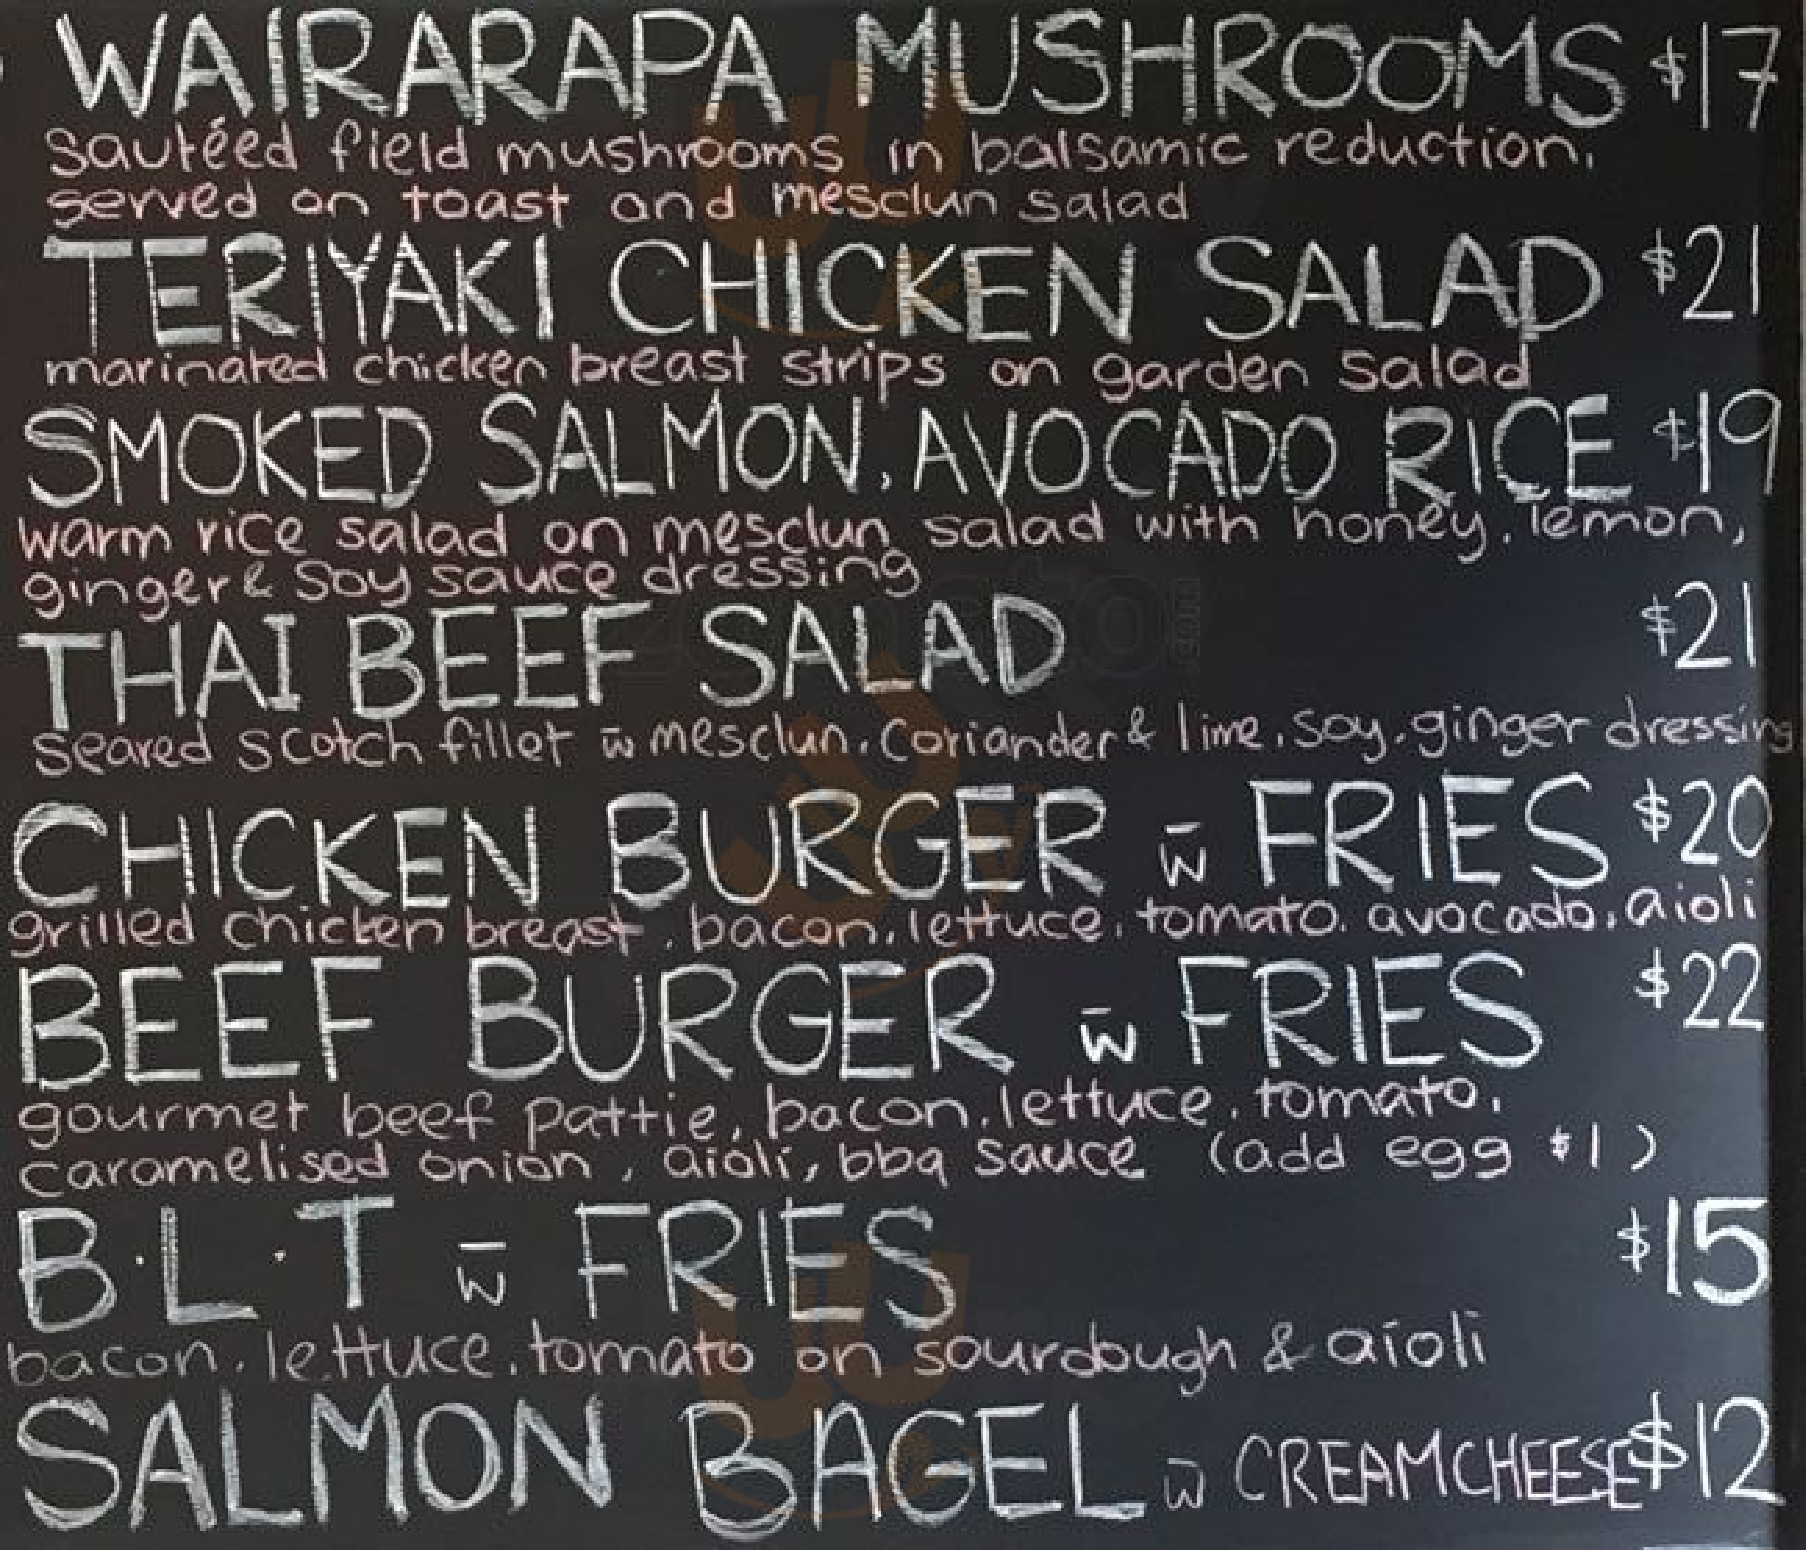 WAIRARAPA MUSHROOMS $17
Sautéed field mushrooms in balsamic reduction,
served on toast and mesclun salad
TERIYAKI CHICKEN SALAD $21
marinated chicken breast strips on garden salad
SMOKED SALMON, AVOCADO RICE $19
warm rice salad on mesclun salad with honey, lemon,
ginger & soy sauce dressing
THAI BEEF SALAD $21
seared scotch fillet w̄ mesclun, coriander & lime, soy, ginger dressing
CHICKEN BURGER w̄ FRIES $20
grilled chicken breast, bacon, lettuce, tomato, avocado, aioli
BEEF BURGER w̄ FRIES $22
gourmet beef pattie, bacon, lettuce, tomato,
caramelised onion, aioli, bbq sauce (add egg $1)
B.L.T w̄ FRIES $15
bacon, lettuce, tomato on sourdough & aioli
SALMON BAGEL w̄ CREAMCHEESE $12